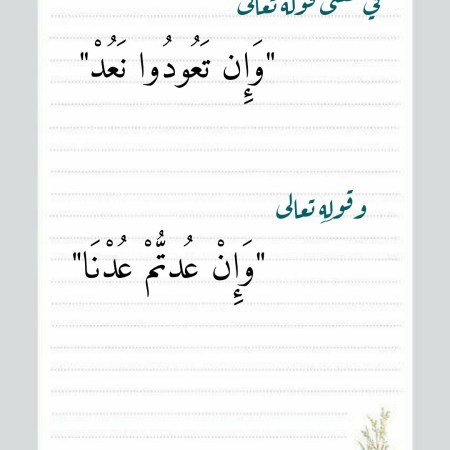 في قوله تعالى
"وَإِن تَعُودُوا نَعُدْ"
وقولِهِ تعالى
"وَإِنْ عُدتُّمْ عُدْنَا"